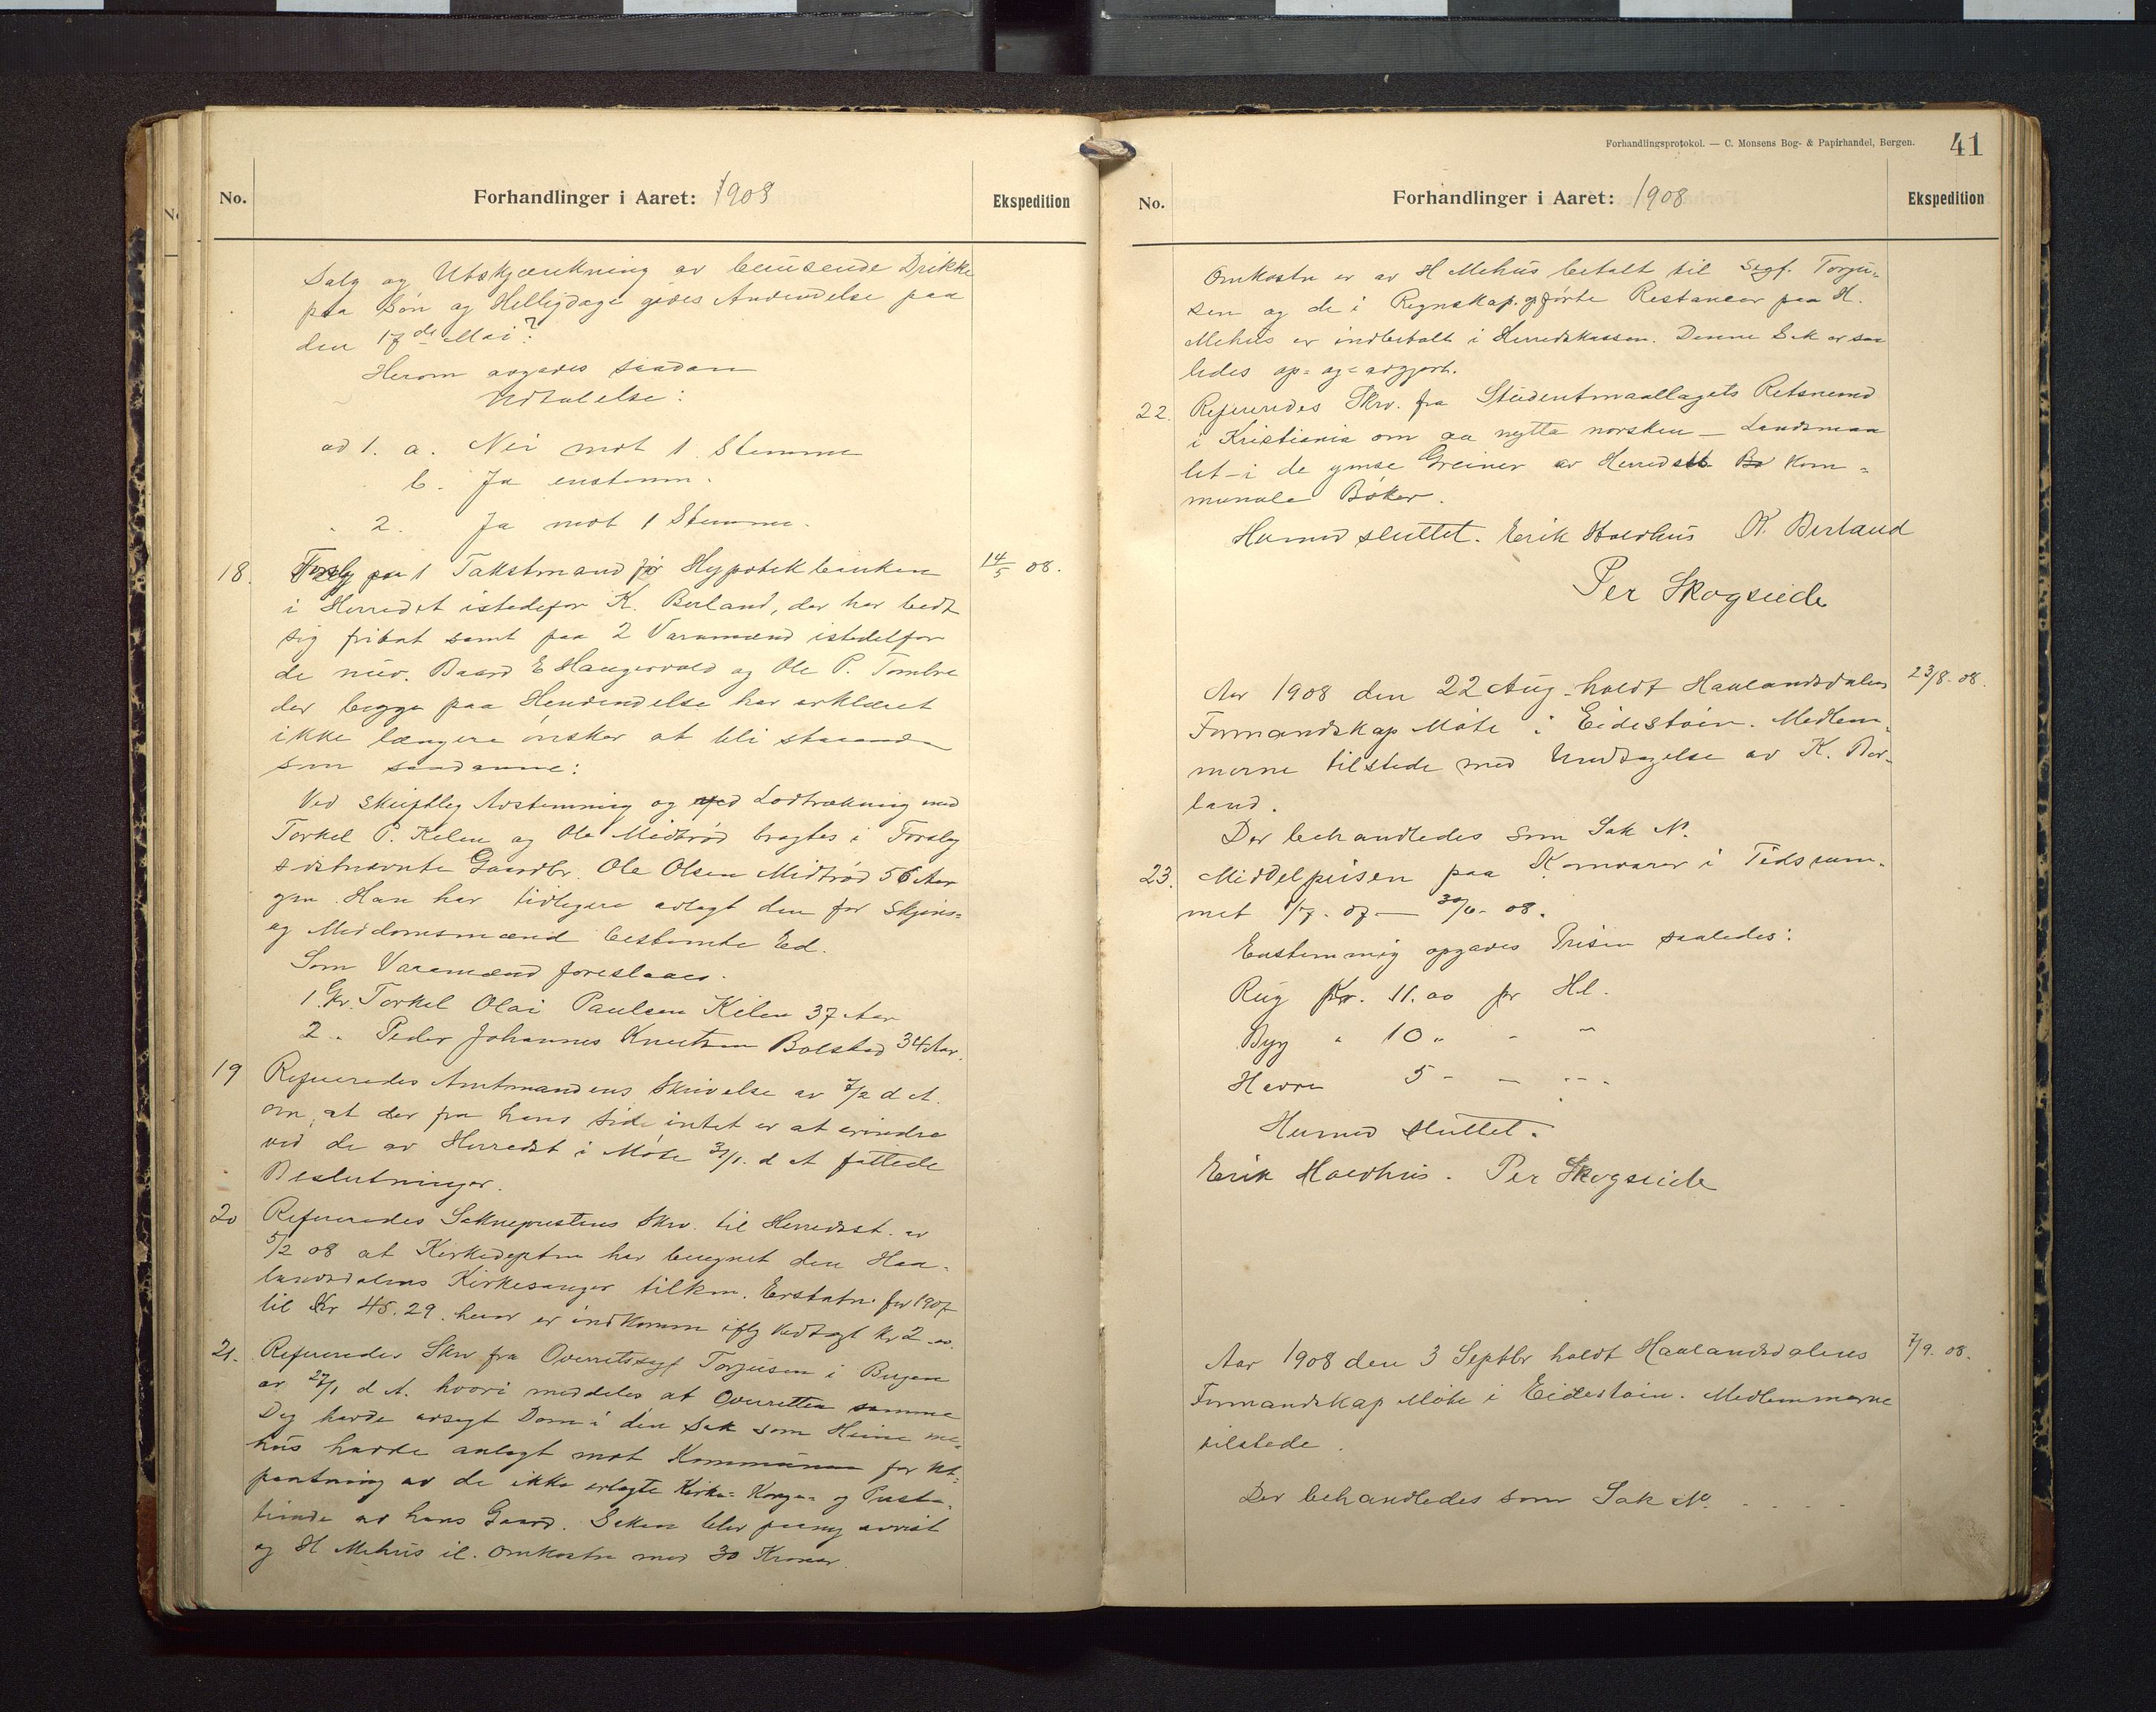 No.
Forhandlinger i Aaret: 1908
Ekspedition
Salg og Utskjænkning av berusende Drikke
paa Søn og Helligdage gives Anvendelse paa
den 17de Mai?
Herom avgaves saadan
Udtalelse:
ad 1. a. Nei mot 1 Stemme
b. Ja enstemm.
" 2. Ja mot 1 Stemme.
18. Forslg paa 1 Takstmand for Hypotekbanken
14/5 08.
i Herredet istedefor K. Berland, der har bedt
sig fritat samt paa 2 Varamænd istedetfor
de nuv. Baard E Haugervold og Ole P. Tombre
der begge paa Henvendelse har erklæret
ikke længere ønsker at bli staaende
som saadanne:
Ved skriftlig Avstemning og ved Lodtrækning med
Torkel P. Kilen og Ole Midtrød bragtes i Forslag
sidstnævnte Gaardbr. Ole Olsen Midtrød 56 Aar
gm. Han har tidligere avlagt den for Skjøns=
og Meddomsmænd bestemte Ed.
Som Varamænd foreslaaes.
1. Gr. Torkel Olai Paulsen Kilen 37 Aar
2. " Peder Johannes Knutsen Bolstad 34 Aar.
19 Refereredes Amtmandens Skrivelse av 7/2 d A.
om, at der fra hans Side intet er at erindre
ved de av Herredst i Møte 31/1. d A fattede
Beslutninger.
20 Refereredes Sokneprestens Skrv. til Herredsst. av
5/2 08 at Kirkedeptm har beregnet den Haa-
landsdalens Kirkesanger tilkm. Erstatn. for 1907
til Kr 45.29. herav er indkomm iflg Vedtægt Kr 2.00.
21. Refereredes Skrv fra Overretssagf Torjusen i Bergen
av 27/1 d A. hvori meddeles at Overretten samme
Dag havde avsagt Dom i den Sak som Heine Me-
hus havde anlagt mot Kommunen for Ut-
pantning av de ikke erlagte Kirke= Konge= og Preste-
tiende av hans Gaard. Saken blev paany avvist
og H Mehus il. Omkostn med 30 Kroner.
Forhandlingsprotokol. — C. Monsens Bog- & Papirhandel, Bergen.
41
No.
Forhandlinger i Aaret: 1908
Ekspedition
Omkostn er av H Mehus betalt til Sagf. Torju-
sen og de i Regnskap. opførte Restancer paa H.
Mehus er indbetalt i Herredskassen. Denne Sak er saa
ledes op= og=avgjort.
22. Refereredes Skrv. fra Studentmaallagets Retsnemd
i Kristiania om aa nytta norsken — Landsmaa
let - i de ymse Greiner av Herredsst Bø Kom=
munale Bøker.
Hermed sluttet. Erik Holdhus K. Berland
Per Skogseide
Aar 1908 den 22 Aug. holdt Haalandsdalens
23/8. 08.
Formandskap Møte i Eidestøin. Medlem-
merne tilstede med Undtagelse av K. Ber-
land.
Der behandledes som Sak No.
23. Middelprisen paa Kornvarer i Tidsrum-
met 1/7. 07 — 30/6. 08.
Enstemmig opgaves Prisen saaledes:
Rug Kr. 11.00 pr Hl.
Byg " 10 " - -
Havre 5 - - - -
Hermed sluttet.
Erik Holdhus. Per Skogseide
Aar 1908 den 3 Septbr holdt Haalandsdalens
7/9. 08.
Formandskap Møte i Eidestøin. Medlemmerne
tilstede.
Der behandledes som Sak No. . . . .